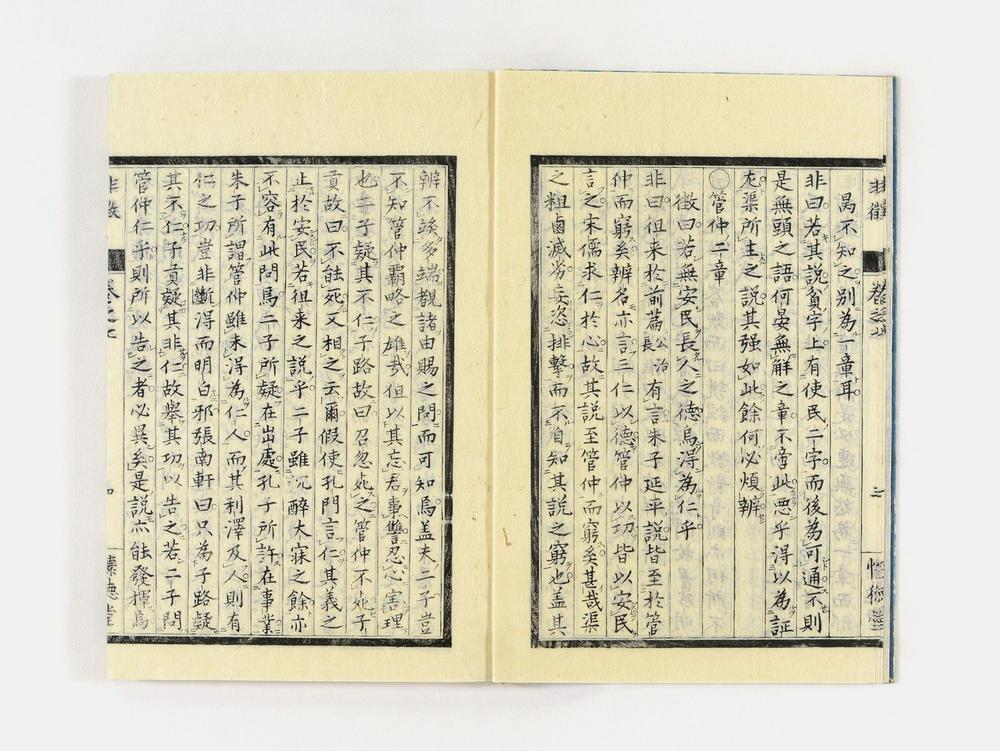 非徵 卷之七 三 懷德堂
愚不知之別為一章耳
非曰若其說貧字上有使民二字而後為可通不則
是無頭之語何晏無解之章不啻此惡乎得以為証
尨渠所主之說其强如此餘何必煩辨
管仲二章
徵曰若無安民長人之德烏得為仁乎
非曰徂来於前篇公冶長有言朱子延平說皆至於管
仲而窮矣辨名亦言三仁以德管仲以功皆以安民
言之宋儒求仁於心故其說至管仲而窮矣甚哉渠
之粗鹵滅劣妄恣排擊而不自知其說之窮也盖其
辨不竢多端覩諸由賜之問而可知焉盖夫二子豈
不知管仲霸略之雄哉但以其忘君事讐忍心害理
也二子疑其不仁子路故曰召忽死之管仲不死子
貢故曰不能死又相之云爾假使孔門言仁其義之
止於安民若徂来之說乎二子雖沉醉大寐之餘亦
不容有此問焉二子所疑在出處孔子所許在事業
朱子所謂管仲雖未得為仁人而其利澤及人則有
仁之功豈非斷得而明白邪張南軒曰只為子路疑
其不仁子貢疑其非仁故舉其功以告之若二子問
管仲仁乎則所以告之者必異矣是說亦能發揮焉
非徵 卷之七 四 懷德堂